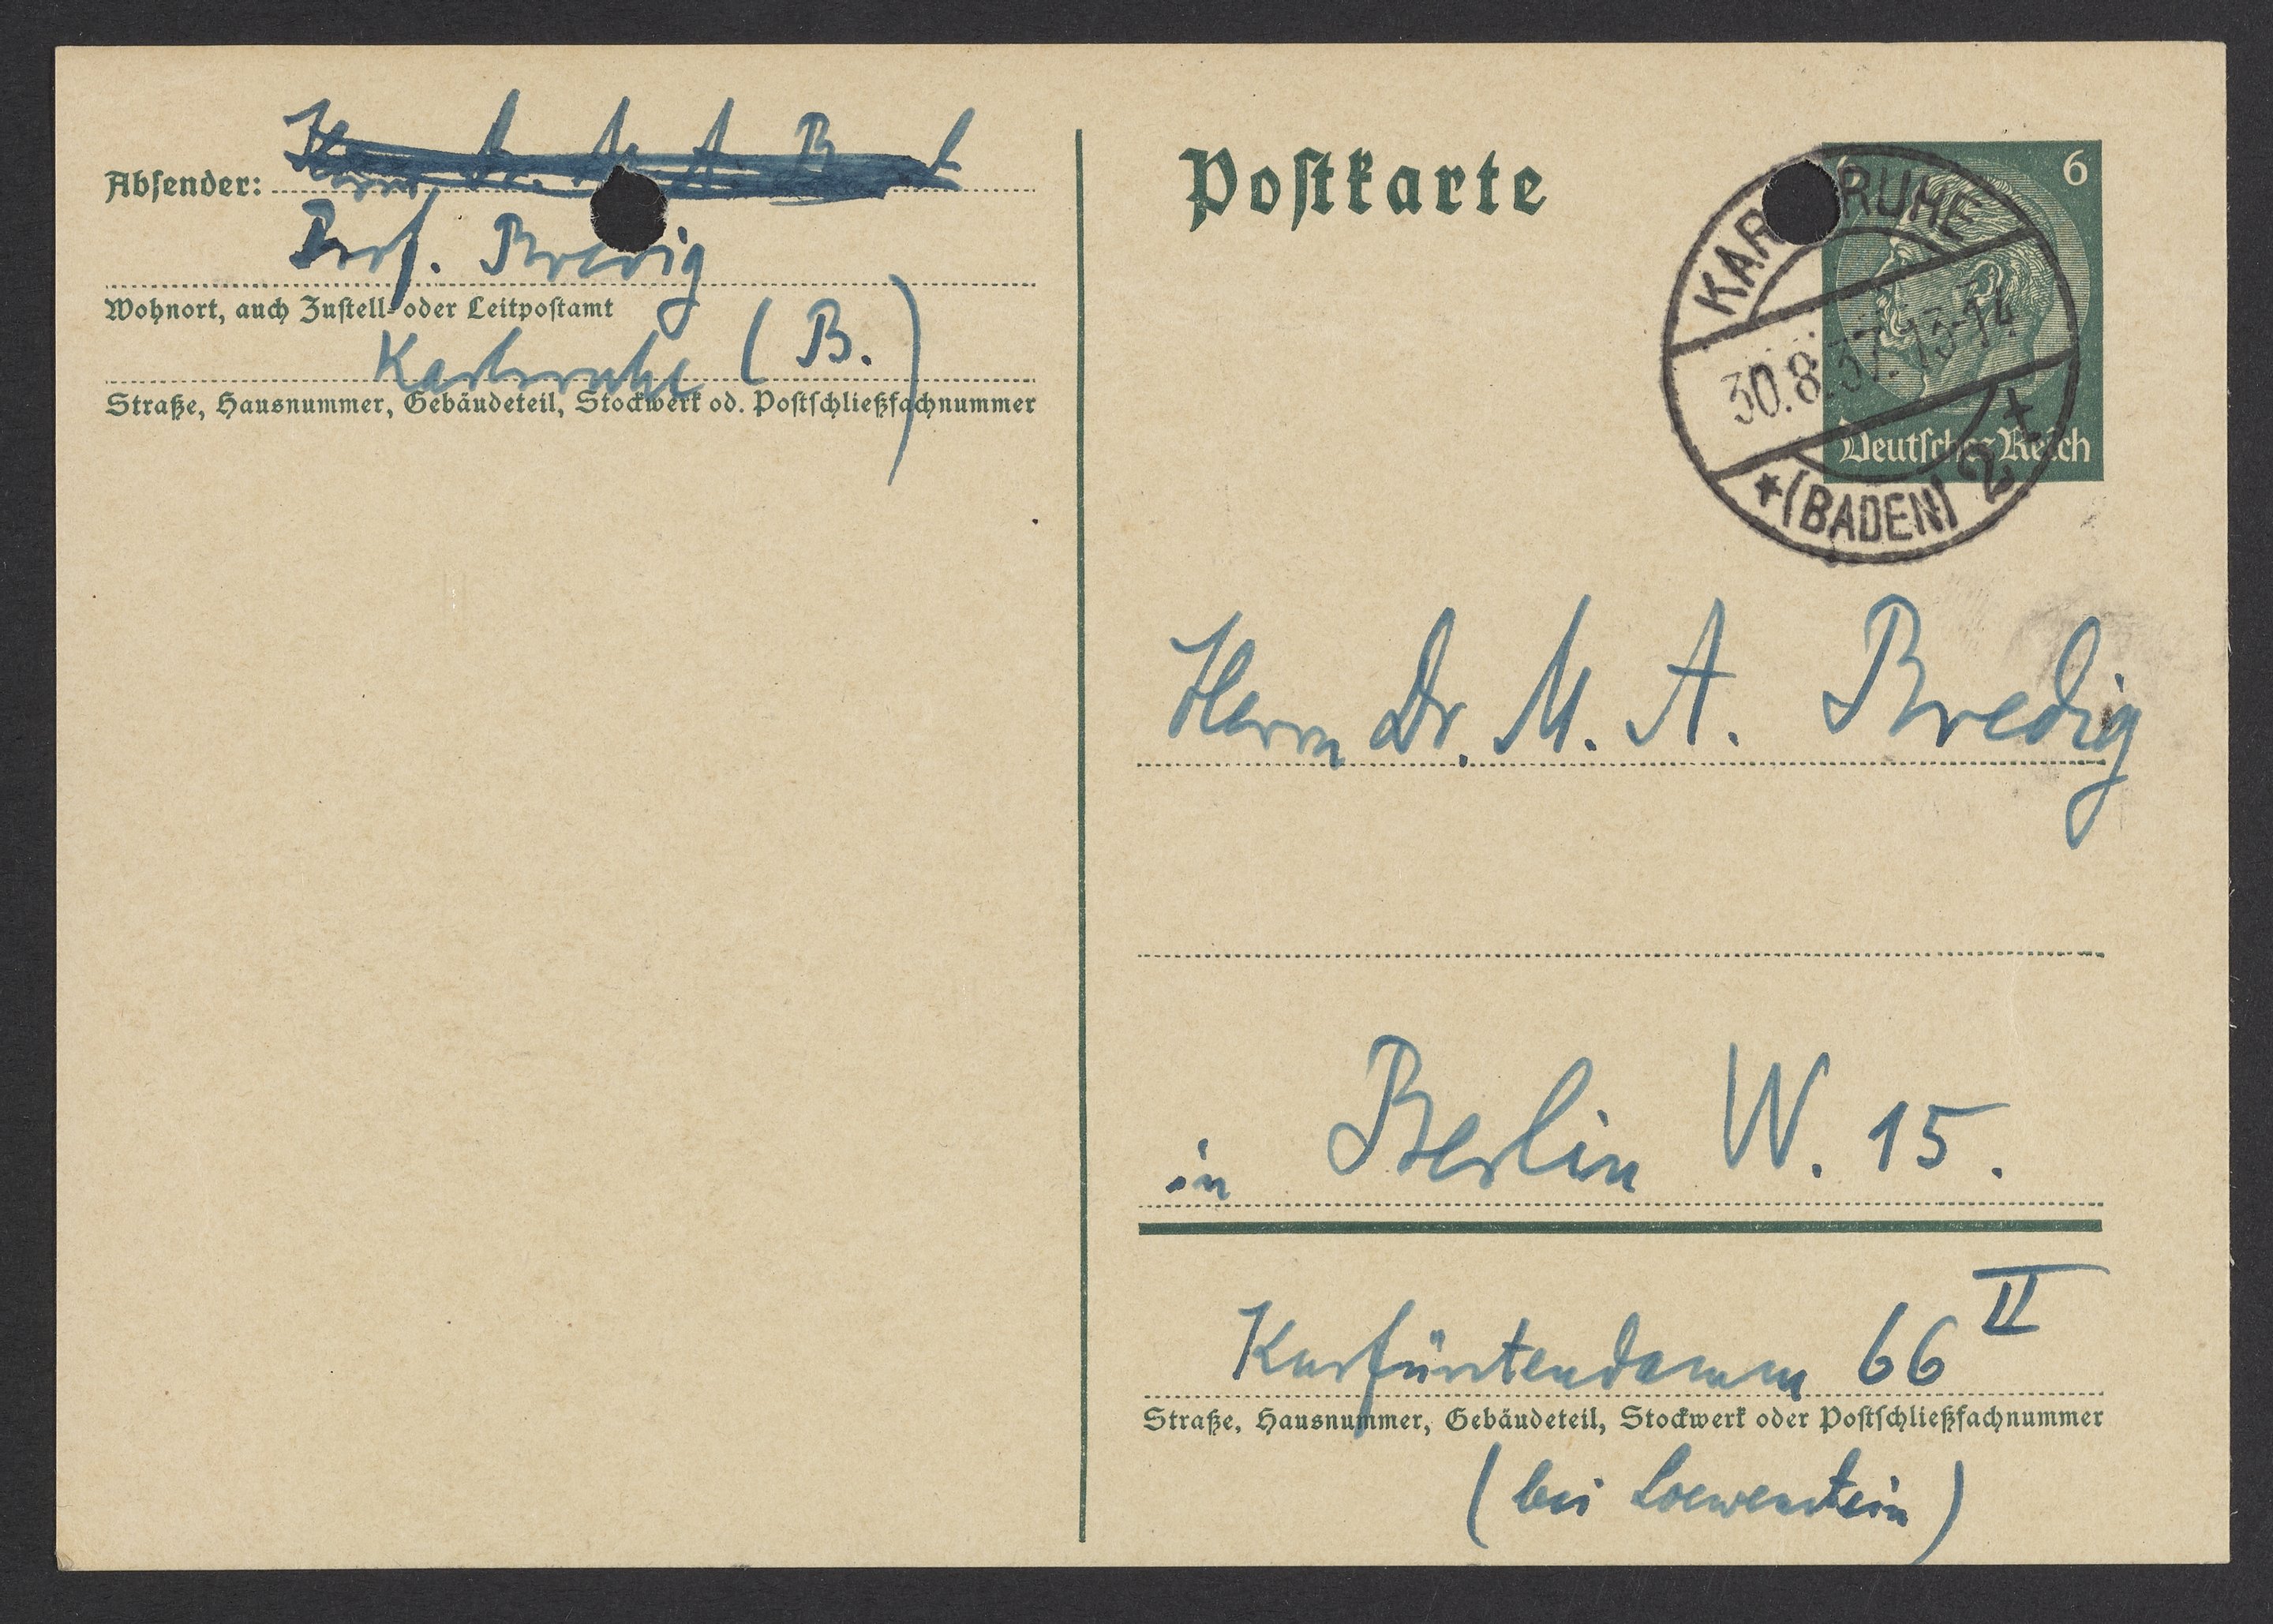 Absender:
Prof. Bredig
Wohnort, auch Zustell- oder Leitpostamt
Karlsruhe (B.)
Straße, Hausnummer, Gebäudeteil, Stockwerk od. Postschließfachnummer
Postkarte
6
KARLSRUHE
30.8.37.13-14
Deutsches Reich
*(BADEN) 2 *
Herrn Dr. M. A. Bredig
in Berlin W. 15.
Kurfürstendamm 66 II
Straße, Hausnummer, Gebäudeteil, Stockwerk oder Postschließfachnummer
(bei Loewenstein)